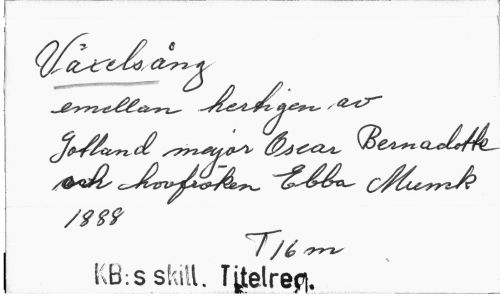 Växelsång
emellan hertigen av
Gotland major Oscar Bernadotte
och hovfröken Ebba Munck
1888
T 16 m
KB:s skill. Titelreg.